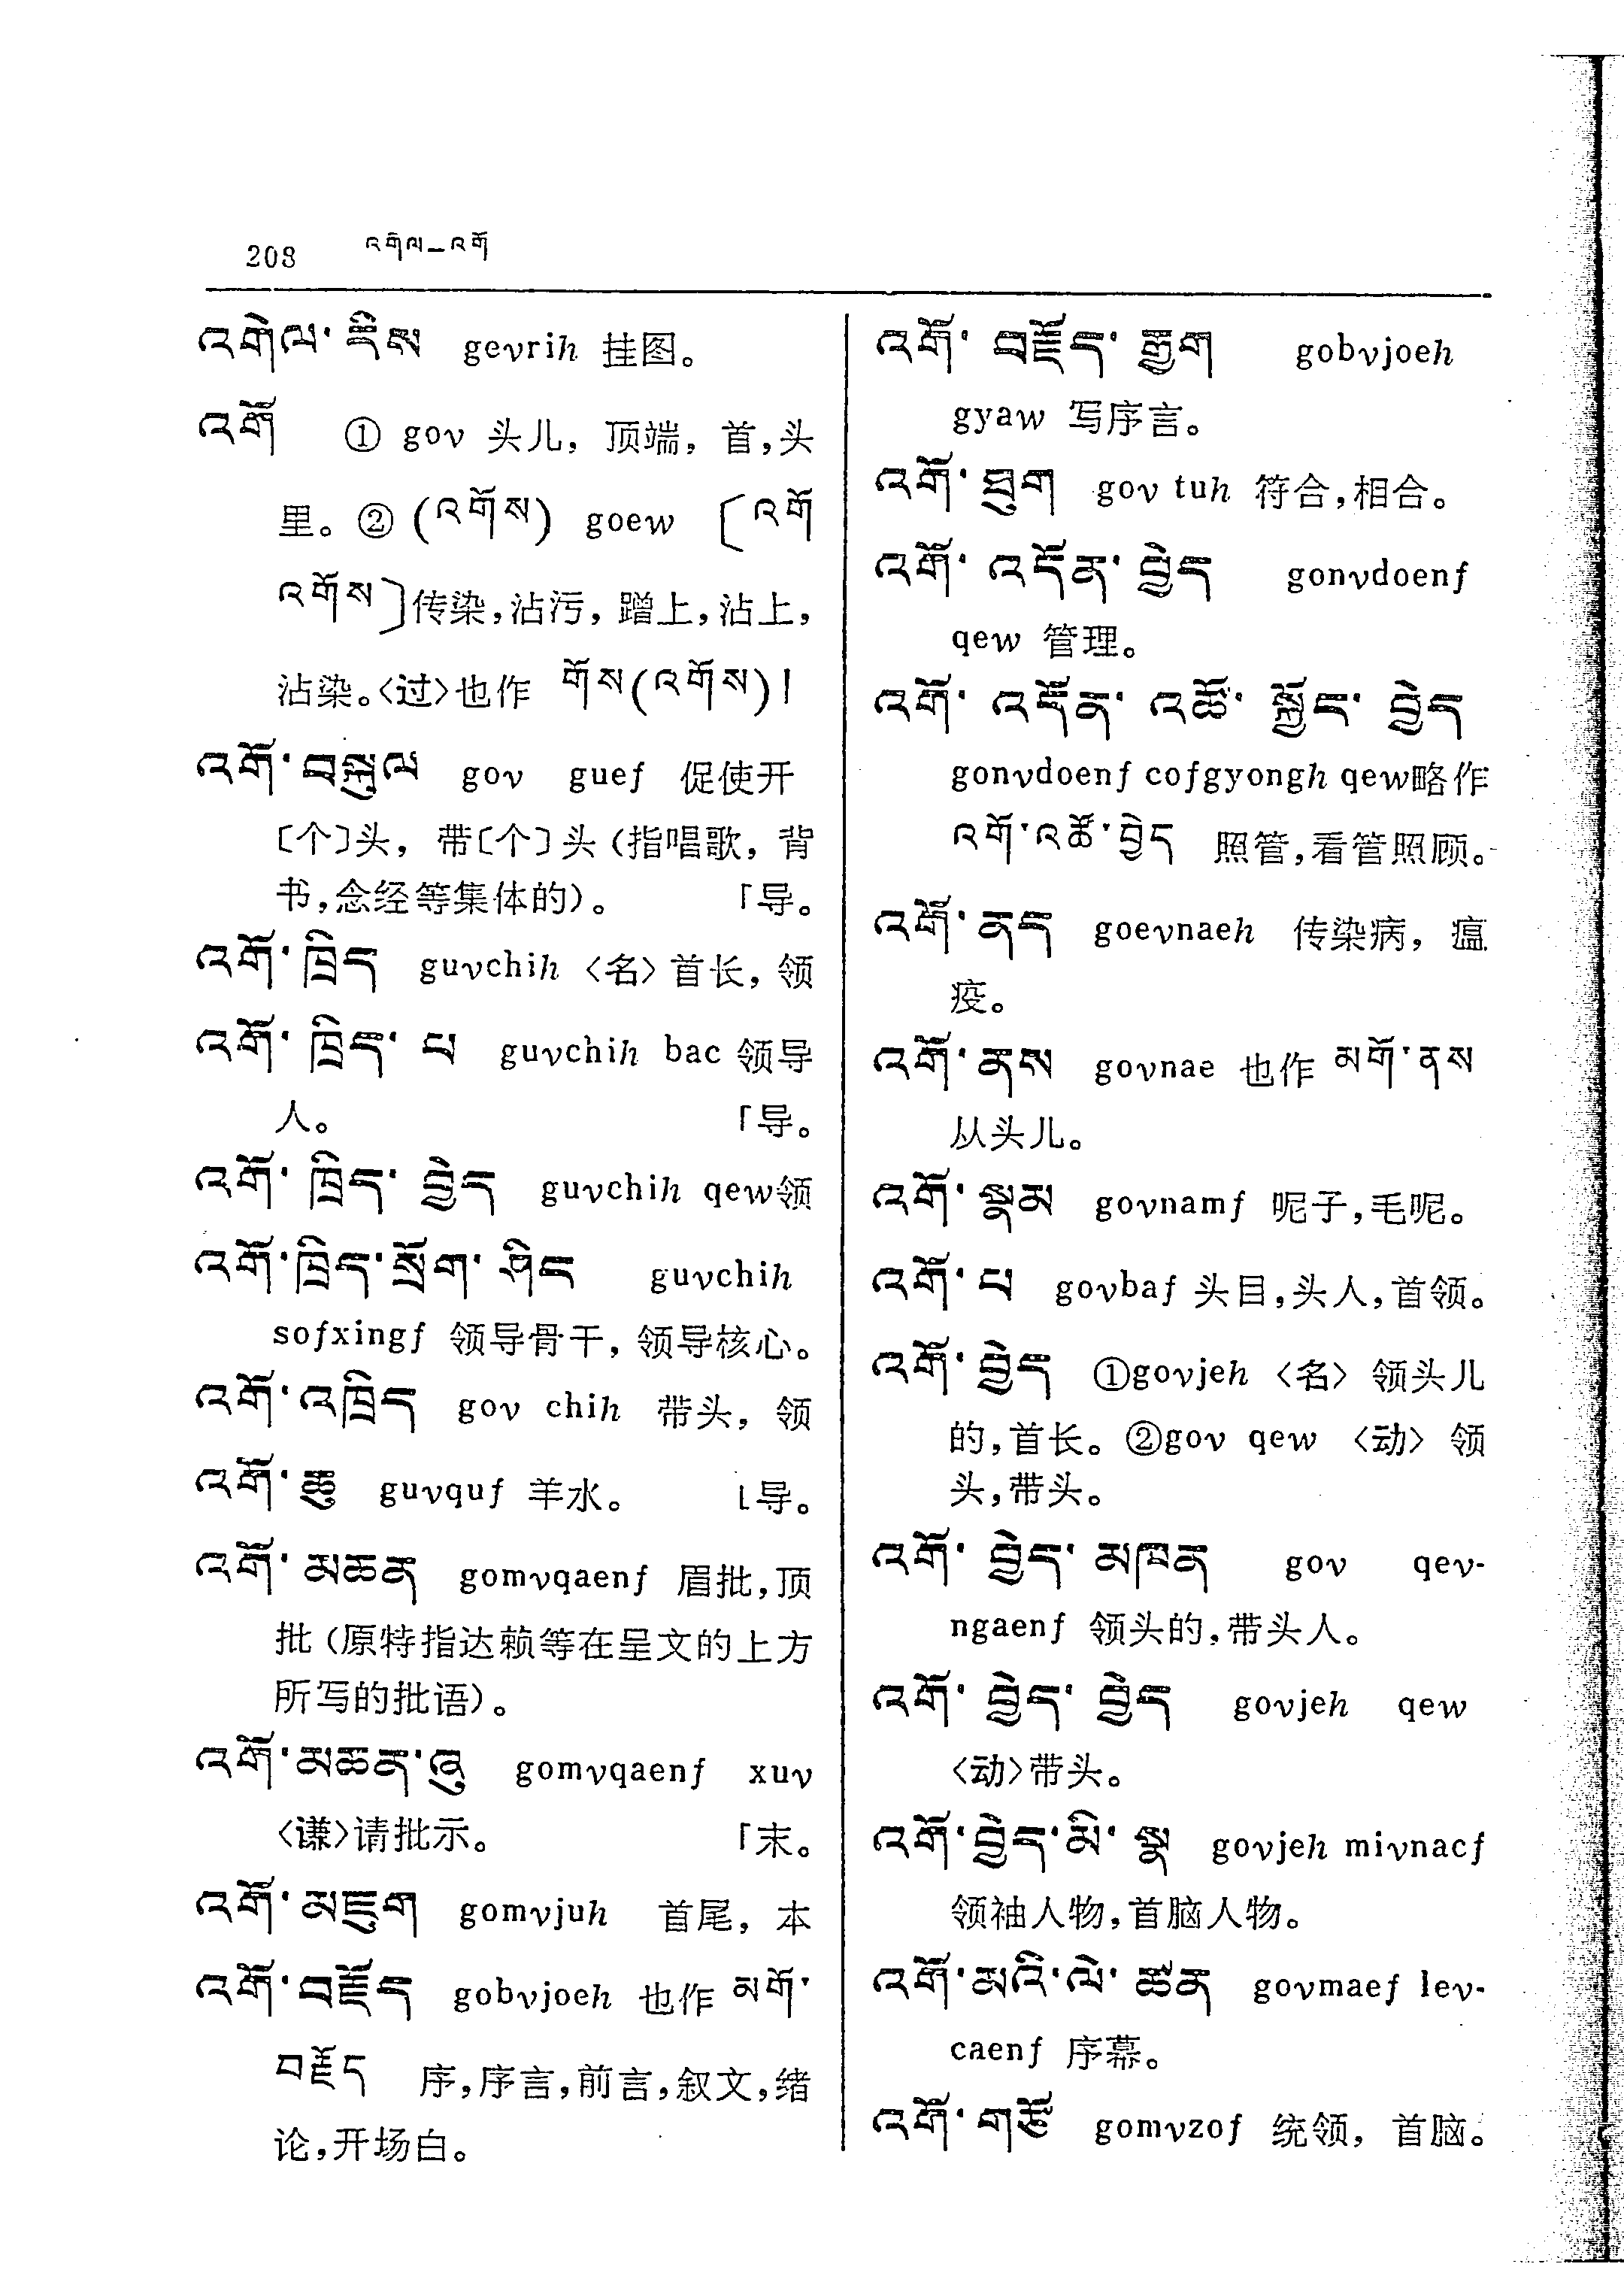 208 འགེལ—འགོ
འགེལ་ རིས gevrih 挂图。
འགོ ① gov 头儿，顶端，首，头
里。② (འགོས) goew 〔འགོ
འགོས〕传染，沾污，蹭上，沾上，
沾染。〈过〉也作 གོས(འགོས)།
འགོ་བསྐུལ gov guef 促使开
〔个〕头，带〔个〕头（指唱歌，背
书，念经等集体的）。 「导。
འགོ་ཁྲིད guvchih 〈名〉首长，领
འགོ་ ཁྲིད་ པ guvchih bac 领导
人。 「导。
འགོ་ ཁྲིད་ བྱེད guvchih qew领
འགོ་ཁྲིད་སྲོག་ ཤིང guvchih
sofxingf 领导骨干，领导核心。
འགོ་འཁྲིད gov chih 带头，领
འགོ་ཆུ guvquf 羊水。 ⌊导。
འགོ་ མཆན gomvqaenf 眉批，顶
批（原特指达赖等在呈文的上方
所写的批语）。
འགོ་མཆན་ཞུ gomvqaenf xuv
〈谦〉请批示。 「末。
འགོ་མཇུག gomvjuh 首尾，本
འགོ་བརྗོད gobvjoeh 也作 མགོ་
བརྗོད 序，序言，前言，叙文，绪
论，开场白。
འགོ་ བརྗོད་ རྒྱག gobvjoeh
gyaw 写序言。
འགོ་ཐུག gov tuh 符合，相合。
འགོ་ འདོན་ བྱེད gonvdoenf
qew 管理。
འགོ་ འདོན་ འཚོ་ སྐྱོང་ བྱེད
gonvdoenf cofgyongh qew略作
འགོ་འཚོ་བྱེད 照管，看管照顾。
འགོ་ནད goevnaeh 传染病，瘟
疫。
འགོ་ནས govnae 也作 མགོ་ནས
从头儿。
འགོ་སྣམ govnamf 呢子，毛呢。
འགོ་པ govbaf 头目，头人，首领。
འགོ་བྱེད ①govjeh 〈名〉 领头儿
的，首长。②gov qew 〈动〉 领
头，带头。
འགོ་ བྱེད་ མཁན gov qev-
ngaenf 领头的，带头人。
འགོ་ བྱེད་ བྱེད govjeh qew
〈动〉带头。
འགོ་བྱེད་མི་ སྣ govjeh mivnacf
领袖人物，首脑人物。
འགོ་མའི་ལེ་ ཚན govmaef lev-
caenf 序幕。
འགོ་གཙོ gomvzof 统领，首脑。